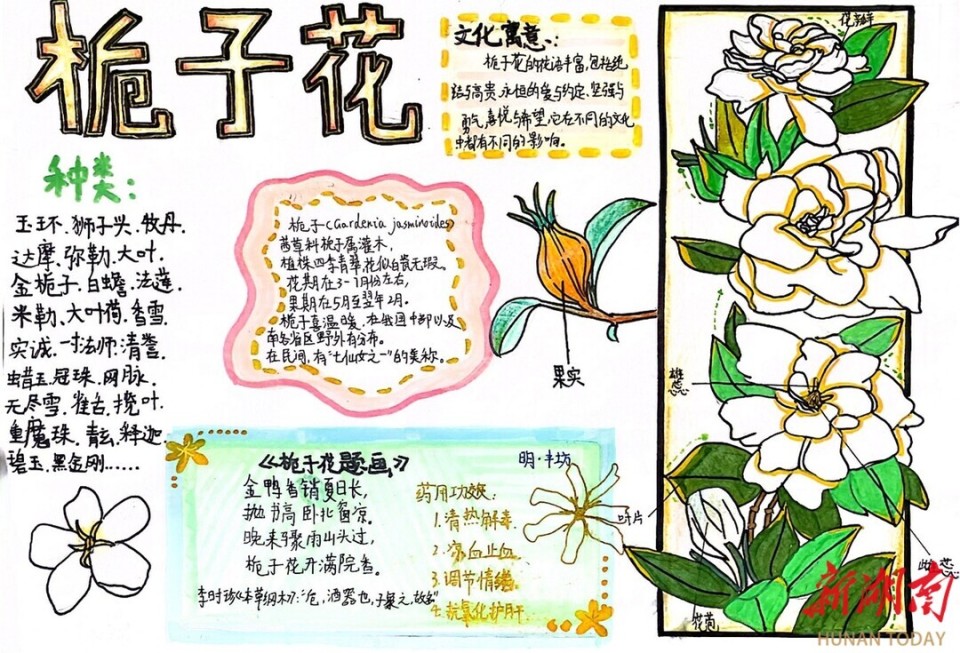 栀子花
文化寓意:
栀子花的花语丰富,包括纯
洁与高贵、永恒的爱与约定、坚强与
勇气、喜悦与希望,它在不同的文化
中都有不同的影响。
种类:
玉环、狮子头、牡丹、
达摩、弥勒、大叶、
金栀子、白蟾、法莲、
米勒、大叶荷、香雪、
实诚、一寸法师、清誉、
蜡玉、冠珠、网脉、
无尽雪、雀舌、揽叶、
鱼魔珠、青玄、释迦、
碧玉、黑金刚……
栀子(Gardenia jasminoides)
茜草科栀子属灌木,
植株四季青翠,花似白赏无瑕。
花期在3-7月份左右,
果期在5月至翌年2月。
栀子喜温暖、在我国中部以及
南各省区野外有分布。
在民间,有“七仙女之一”的美称。
果实
《栀子花题画》
明·丰坊
金鸭香销夏日长,
抛书高卧北窗凉。
晚来骤雨山头过,
栀子花开满院香。
李时珍《本草纲目》:“卮,酒器也,
药用功效:
1.清热解毒
2.凉血止血
3.调节情绪
4.抗氧化护肝
花瓣
雄蕊
叶片
雌蕊
花苞
新湖南
HUNAN TODAY